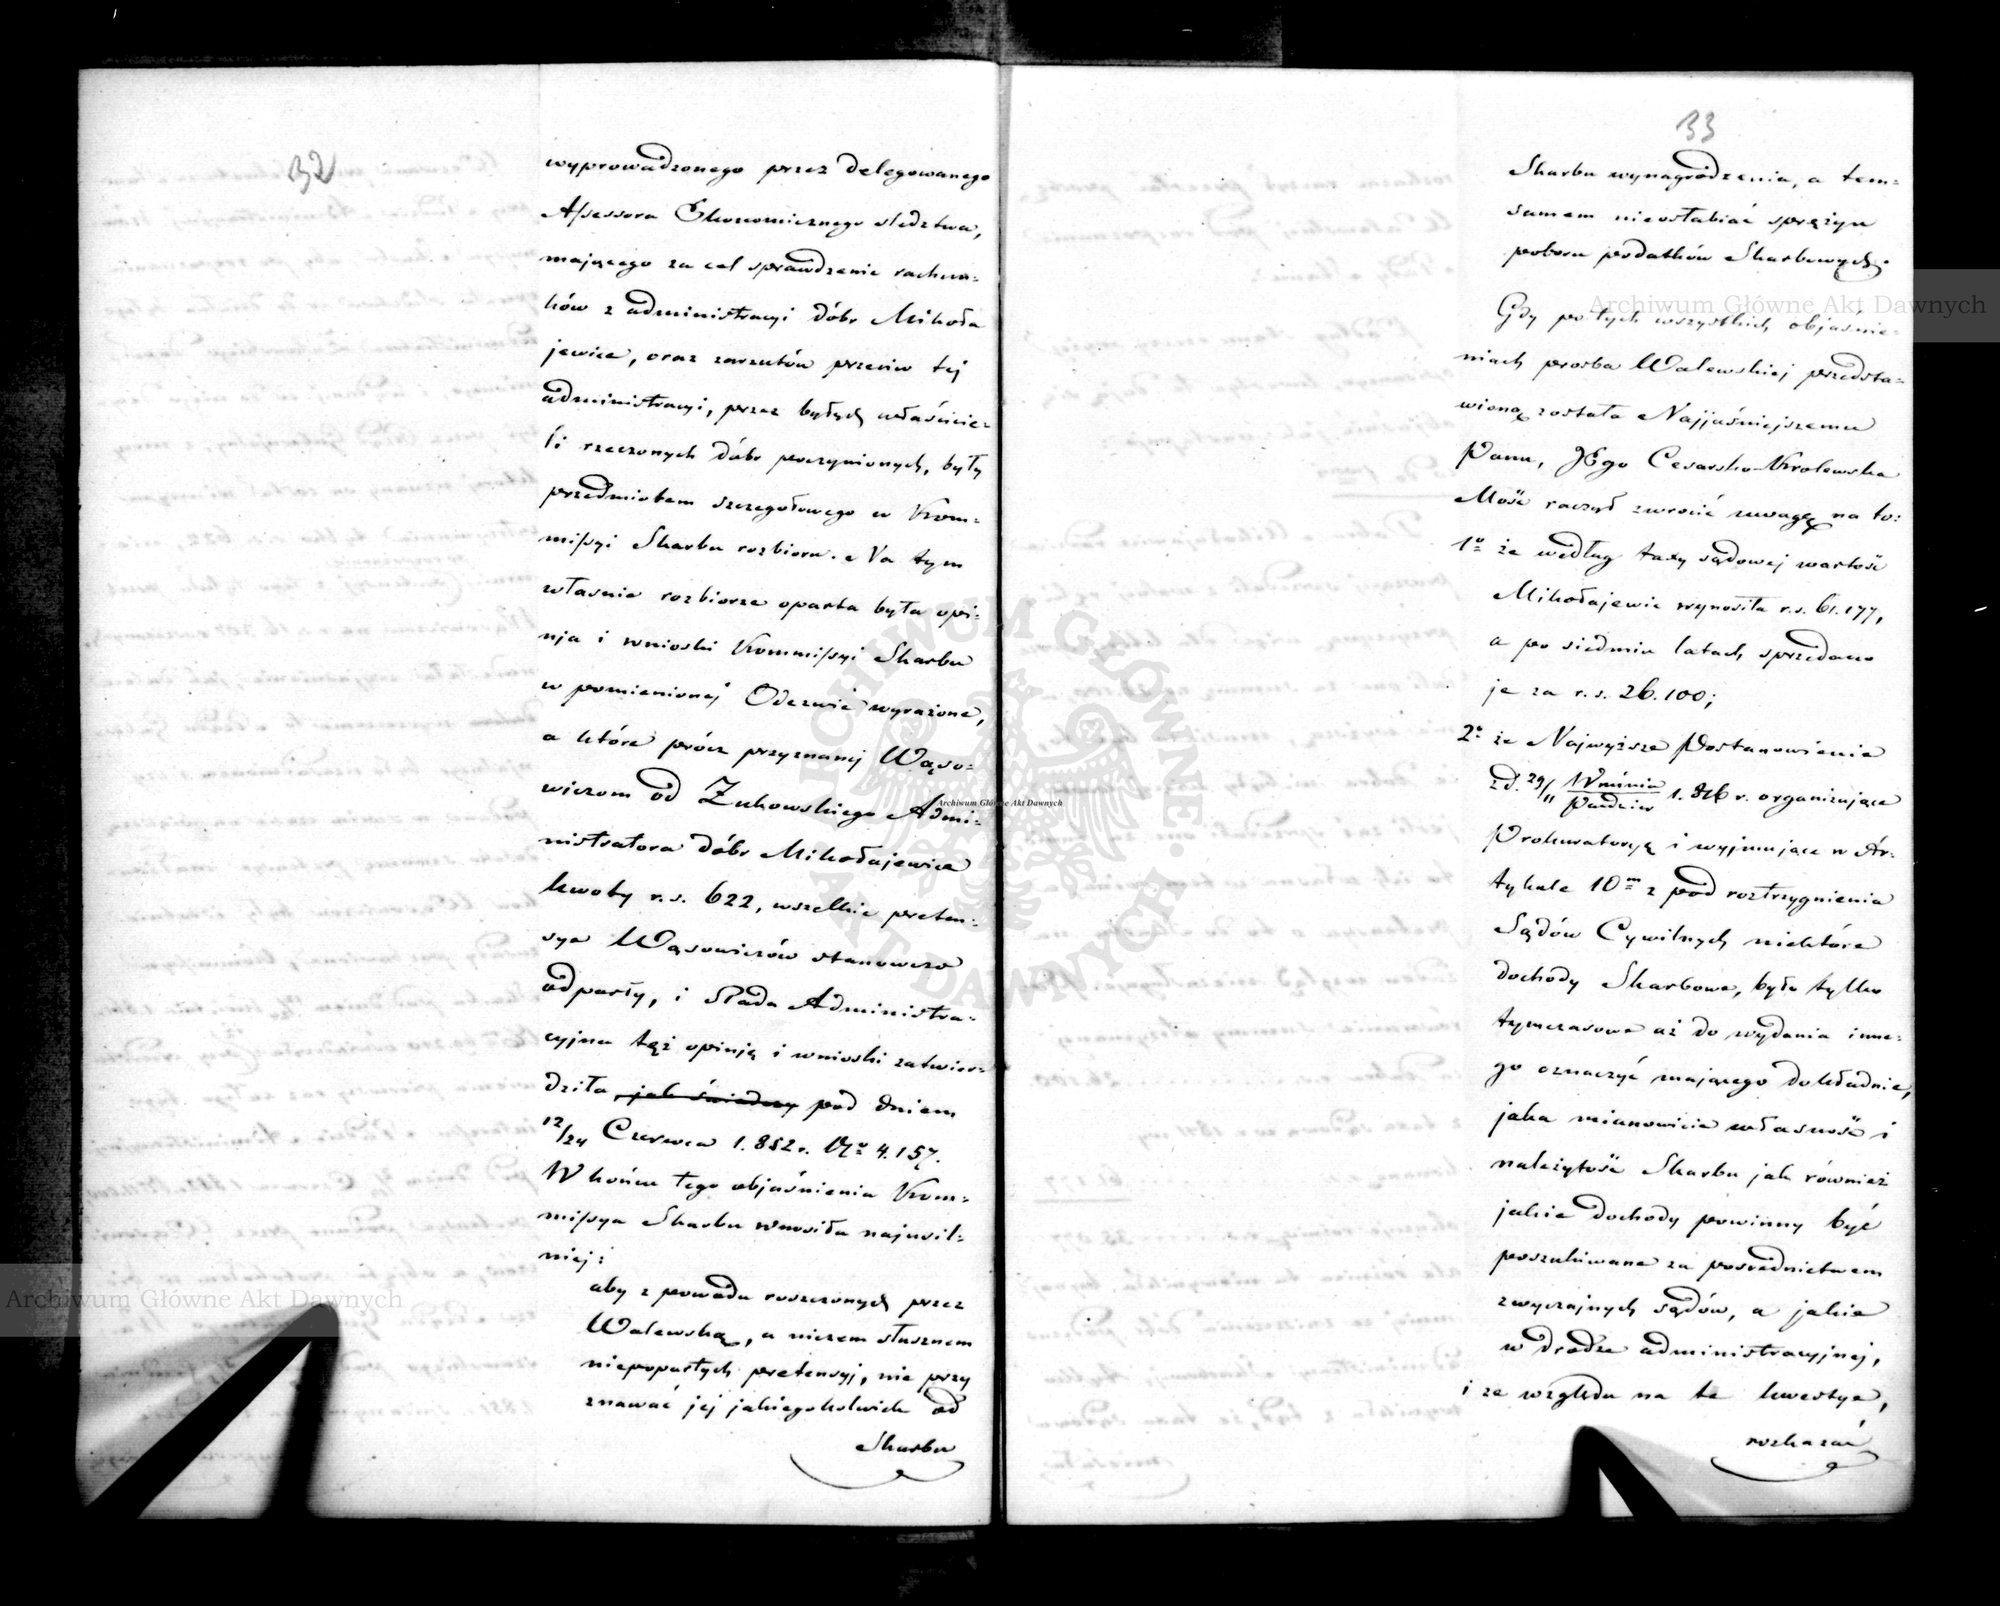 32
wyprowadzonego przez Delegowanego
Assessora Ekonomicznego sledztwa,
mającego za cel sprawdzenie rachun-
ków z administracyi dóbr Mikoła
jewice, oraz zarzutów przeciw tej
administracyi, przez byłych właścicie-
li rzeczonych dóbr poczynionych, były
przedmiotem szczegołowego w Kom-
missyi Skarbu rozbioru. Na tym
własnie rozbiorze oparta była opi-
nja i wnioski Kommissyi Skarbu
w pomienionej Odezwie wyrażone,
a które prócz przyznanej Wąso-
wiczom od Żukowskiego Admi-
nistratora dóbr Mikołajewice
kwoty r.s. 622, wszelkie preten-
sye Wąsowiczów stanowczo
odparły, i Rada Administra-
cyjna też opinją i wnioski zatwier-
dziła, jak świadczy pod dniem
12/24 Czerwca 1.852 r. No 4.157.
W końcu tego objaśnienia Kom-
missya Skarbu wnosiła najusil-
niej:
aby z powodu roszczonych przez
Walewską, a niczem słusznem
niepopartych pretensyj, nie przy
znawać jej jakiegokolwiek od
Skarbu
33
Skarbu wynagrodzenia, a tem-
samem nieosłabiać sprężyn
poboru podatków Skarbowych.
Gdy po tych wszystkich objaśnie-
niach prosba Walewskiej przedsta-
wioną została Najjaśniejszemu
Panu, JEgo Cesarsko-Krolewska
Mość raczył zwrócić uwagę na to:
1o że według taxy sądowej wartość
Mikołajewic wynosiła r.s. 61.177,
a po siedmiu latach sprzedano
je za r.s. 26.100;
2o że Najwyższe Postanowienie
z d. 29/11 Września/Paździer 1.816 r. organizujące
Prokuratoryą i wyjmujące w Ar-
tykule 10m z pod roztrzygnienia
Sądów Cywilnych niektóre
dochody Skarbowe, było tylko
tymczasowe aż do wydania inne-
go oznaczyć mającego dokładnie,
jaka mianowicie własność i
należytość Skarbu jak również
jakie dochody powinny być
poszukiwane za posrednictwem
zwyczajnych sądów, a jakie
w drodze administracyjnej,
i ze względu na te kwestye,
rozkazać
Archiwum Główne Akt Dawnych
Archiwum Główne Akt Dawnych
Archiwum Główne Akt Dawnych
ARCHIWUM GŁÓWNE AKT DAWNYCH